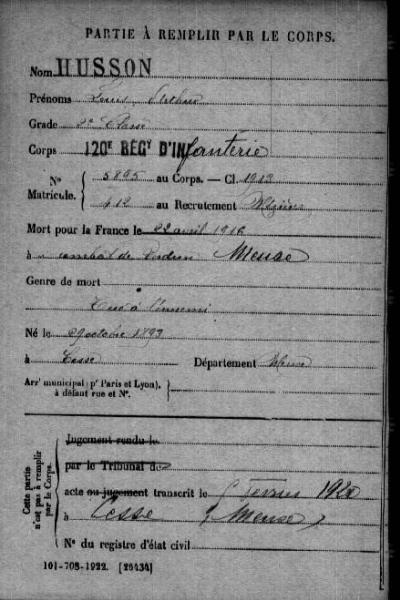 PARTIE À REMPLIR PAR LE CORPS.
Nom HUSSON
Prénoms Louis Arthur
Grade 2e Classe
Corps 120E RÉGT D'INfanterie
N° 5895 au Corps. — Cl. 1913
Matricule. 412 au Recrutement Mézières
Mort pour la France le 22 avril 1916
à combat de Verdun Meuse
Genre de mort
Tué à l'ennemi
Né le octobre 1893
à Cesse Département Meuse
Arrt municipal (pr Paris et Lyon), à défaut rue et N°.
Cette partie n'est pas à remplir par le Corps.
Jugement rendu le
par le Tribunal de
acte ou jugement transcrit le Février 1920
à Cesse (Meuse)
N° du registre d'état civil
101-708-1922. [26434]